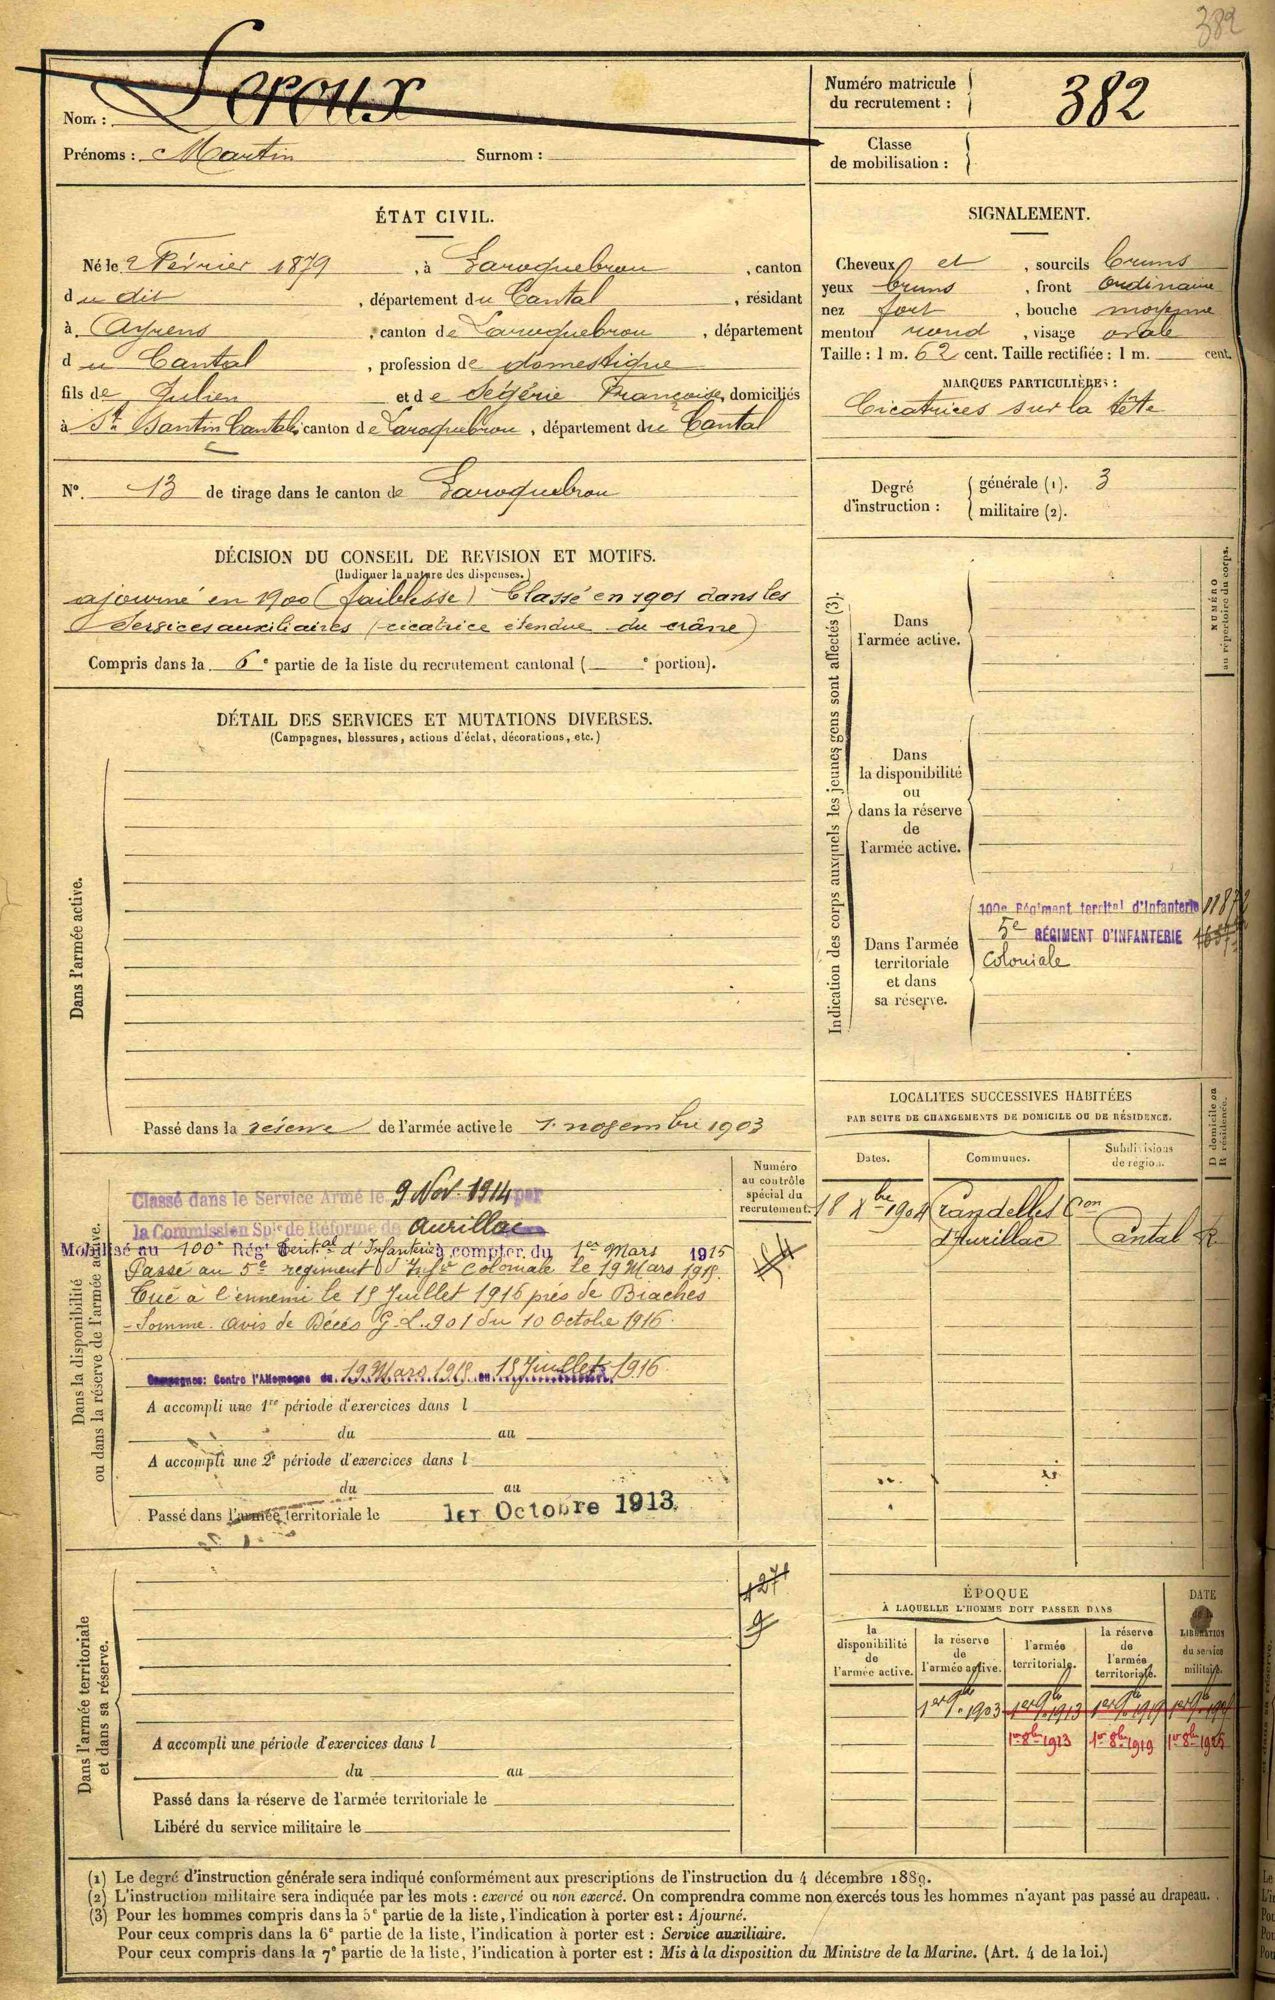 382
Nom : Leroux
Prénoms : Martin Surnom :
Numéro matricule du recrutement : 382
Classe de mobilisation :
ÉTAT CIVIL.
Né le 2 Février 1879, à Laroquebrou, canton
du dit, département du Cantal, résidant
à Ayrens, canton de Laroquebrou, département
du Cantal, profession de domestique
fils de Julien et de Ségérie Françoise, domiciliés
à St Santin Cantalès canton de Laroquebrou, département du Cantal
N° 13 de tirage dans le canton de Laroquebrou
SIGNALEMENT.
Cheveux et, sourcils bruns
yeux bruns, front ordinaire
nez fort, bouche moyenne
menton rond, visage ovale
Taille : 1 m. 62 cent. Taille rectifiée : 1 m. cent.
MARQUES PARTICULIÈRES :
Cicatrices sur la tête
Degré d'instruction : générale (1). 3
militaire (2).
DÉCISION DU CONSEIL DE REVISION ET MOTIFS.
(Indiquer la nature des dispenses.)
ajourné en 1900 (faiblesse) Classé en 1901 dans les
services auxiliaires (cicatrice étendue du crâne)
Compris dans la 6e partie de la liste du recrutement cantonal ( e portion).
DÉTAIL DES SERVICES ET MUTATIONS DIVERSES.
(Campagnes, blessures, actions d'éclat, décorations, etc.)
Dans l'armée active.
Passé dans la réserve de l'armée active le 1er novembre 1903
Indication des corps auxquels les jeunes gens sont affectés (3).
NUMÉRO au répertoire du corps.
Dans l'armée active.
Dans la disponibilité ou dans la réserve de l'armée active.
Dans l'armée territoriale et dans sa réserve.
100e Régiment territal d'Infanterie 11872
5e RÉGIMENT D'INFANTERIE
Coloniale
LOCALITES SUCCESSIVES HABITÉES
PAR SUITE DE CHANGEMENTS DE DOMICILE OU DE RÉSIDENCE.
D domicile ou R résidence.
Dates. Communes. Subdivisions de région.
18 Xbre 1904 Crandelles Con
d'Aurillac Cantal R
Dans la disponibilité ou dans la réserve de l'armée active.
Numéro au contrôle spécial du recrutement.
Classé dans le Service Armé le 9 Nov. 1914 par
la Commission Sple de Réforme de Aurillac
Mobilisé au 100e Régt Territ.al d'Infanterie à compter du 1er Mars 1915
Passé au 5e régiment d'Infie Coloniale le 19 Mars 1915.
Tué à l'ennemi le 15 Juillet 1916 près de Biaches
- Somme. Avis de Décès G.L. 901 du 10 Octobre 1916.
Campagnes: Contre l'Allemagne du 19 Mars 1915 au 15 Juillet 1916
A accompli une 1re période d'exercices dans l
du au
A accompli une 2e période d'exercices dans l
du au
Passé dans l'armée territoriale le 1er Octobre 1913.
Dans l'armée territoriale et dans sa réserve.
A accompli une période d'exercices dans l
du au
Passé dans la réserve de l'armée territoriale le
Libéré du service militaire le
ÉPOQUE
À LAQUELLE L'HOMME DOIT PASSER DANS
la disponibilité de l'armée active.
la réserve de l'armée active.
l'armée territoriale.
la réserve de l'armée territoriale.
DATE de la LIBÉRATION du service militaire.
1er 9bre 1903 1er 9bre 1913 1er 9bre 1919
1er 8bre 1913 1er 8bre 1919 1er 8bre 1925
(1) Le degré d'instruction générale sera indiqué conformément aux prescriptions de l'instruction du 4 décembre 1889.
(2) L'instruction militaire sera indiquée par les mots : exercé ou non exercé. On comprendra comme non exercés tous les hommes n'ayant pas passé au drapeau.
(3) Pour les hommes compris dans la 5e partie de la liste, l'indication à porter est : Ajourné.
Pour ceux compris dans la 6e partie de la liste, l'indication à porter est : Service auxiliaire.
Pour ceux compris dans la 7e partie de la liste, l'indication à porter est : Mis à la disposition du Ministre de la Marine. (Art. 4 de la loi.)